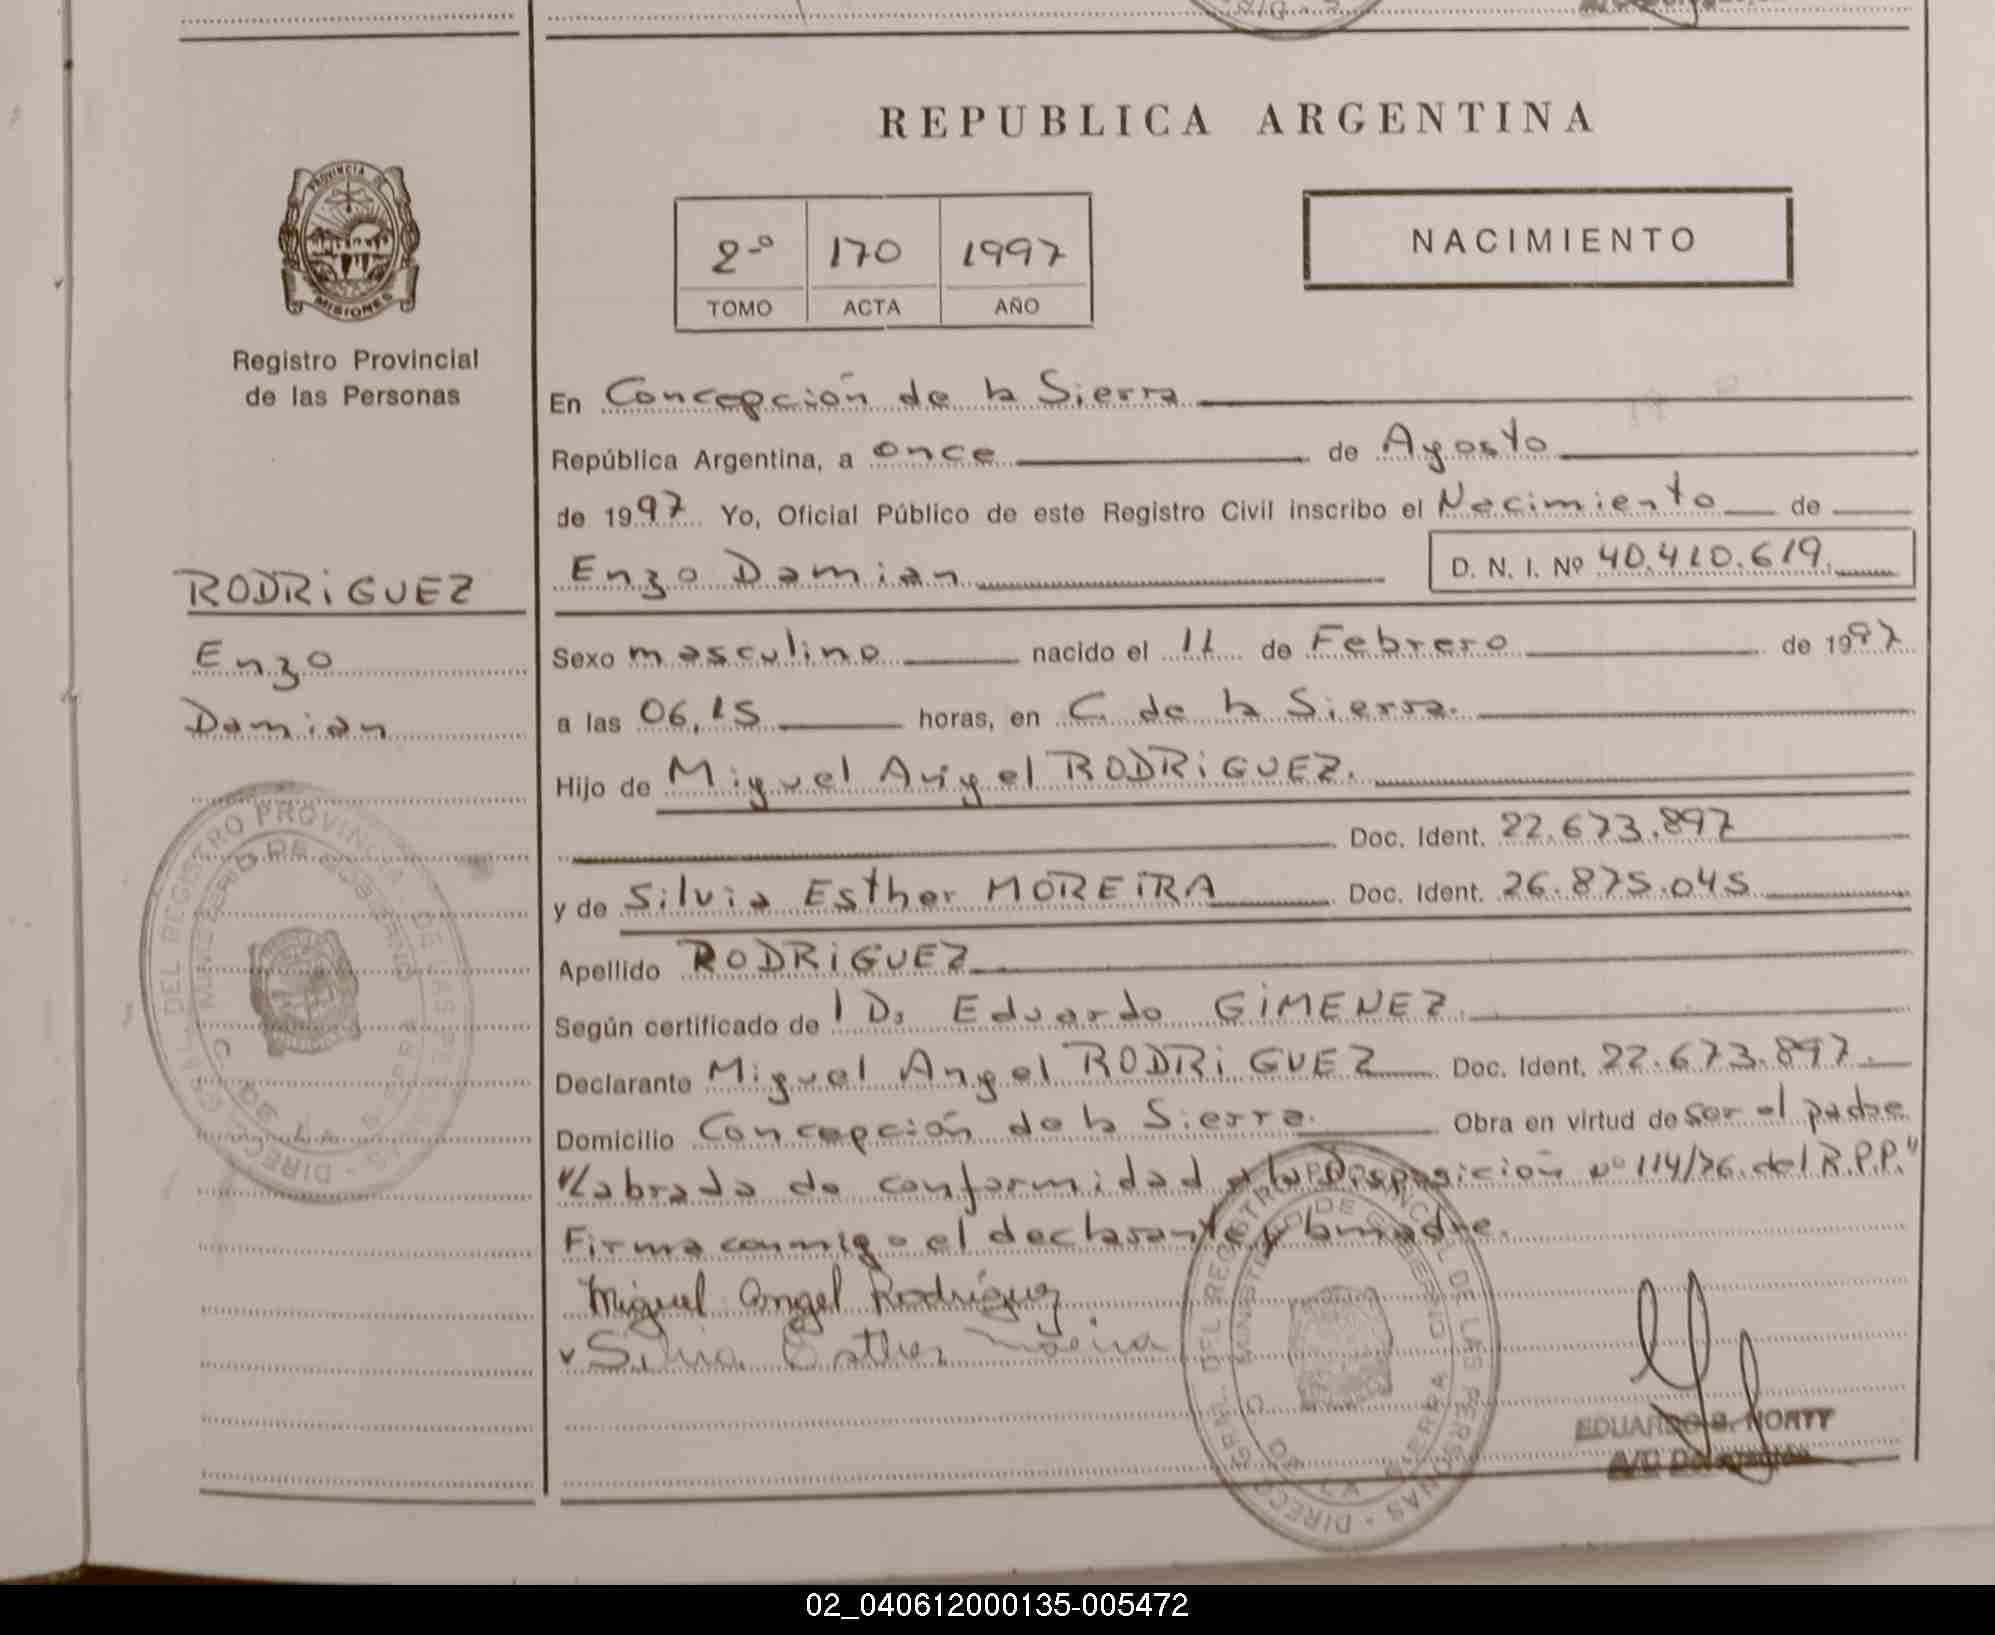 REPUBLICA ARGENTINA
PROVINCIA DE
MISIONES
Registro Provincial
de las Personas
2º 170 1997
TOMO ACTA AÑO
NACIMIENTO
En Concepción de la Sierra
República Argentina, a once de Agosto
de 1997 Yo, Oficial Público de este Registro Civil inscribo el Nacimiento de
Enzo Damian D. N. I. Nº 40.410.619.
RODRiGUEZ
Enzo
Damian
Sexo masculino nacido el 11 de Febrero de 1997
a las 06,15 horas, en C. de la Sierra.
Hijo de Miguel Angel RODRiGUEZ.
Doc. Ident. 22.673.897
y de Silvia Esther MOREiRA Doc. Ident. 26.875.045
Apellido RODRiGUEZ
Según certificado de Eduardo GiMENEZ.
Declarante Miguel Angel RODRiGUEZ Doc. Ident. 22.673.897.
Domicilio Concepción de la Sierra. Obra en virtud de ser el padre
"Labrada de conformidad a la Disposición nº 114/76. del R.P.P."
Firma conmigo el declarante y la madre.
Miguel Angel Rodriguez
Silvia Esther Moreira
DIRECC. GRAL. DEL REGISTRO PROVINCIAL DE LAS PERSONAS
MINISTERIO DE GOBIERNO
C. DE LA SIERRA
DIRECC. GRAL. DEL REGISTRO PROVINCIAL DE LAS PERSONAS
MINISTERIO DE GOBIERNO
C. DE LA SIERRA
EDUARDO NORTY
A/C Delegación
02_040612000135-005472